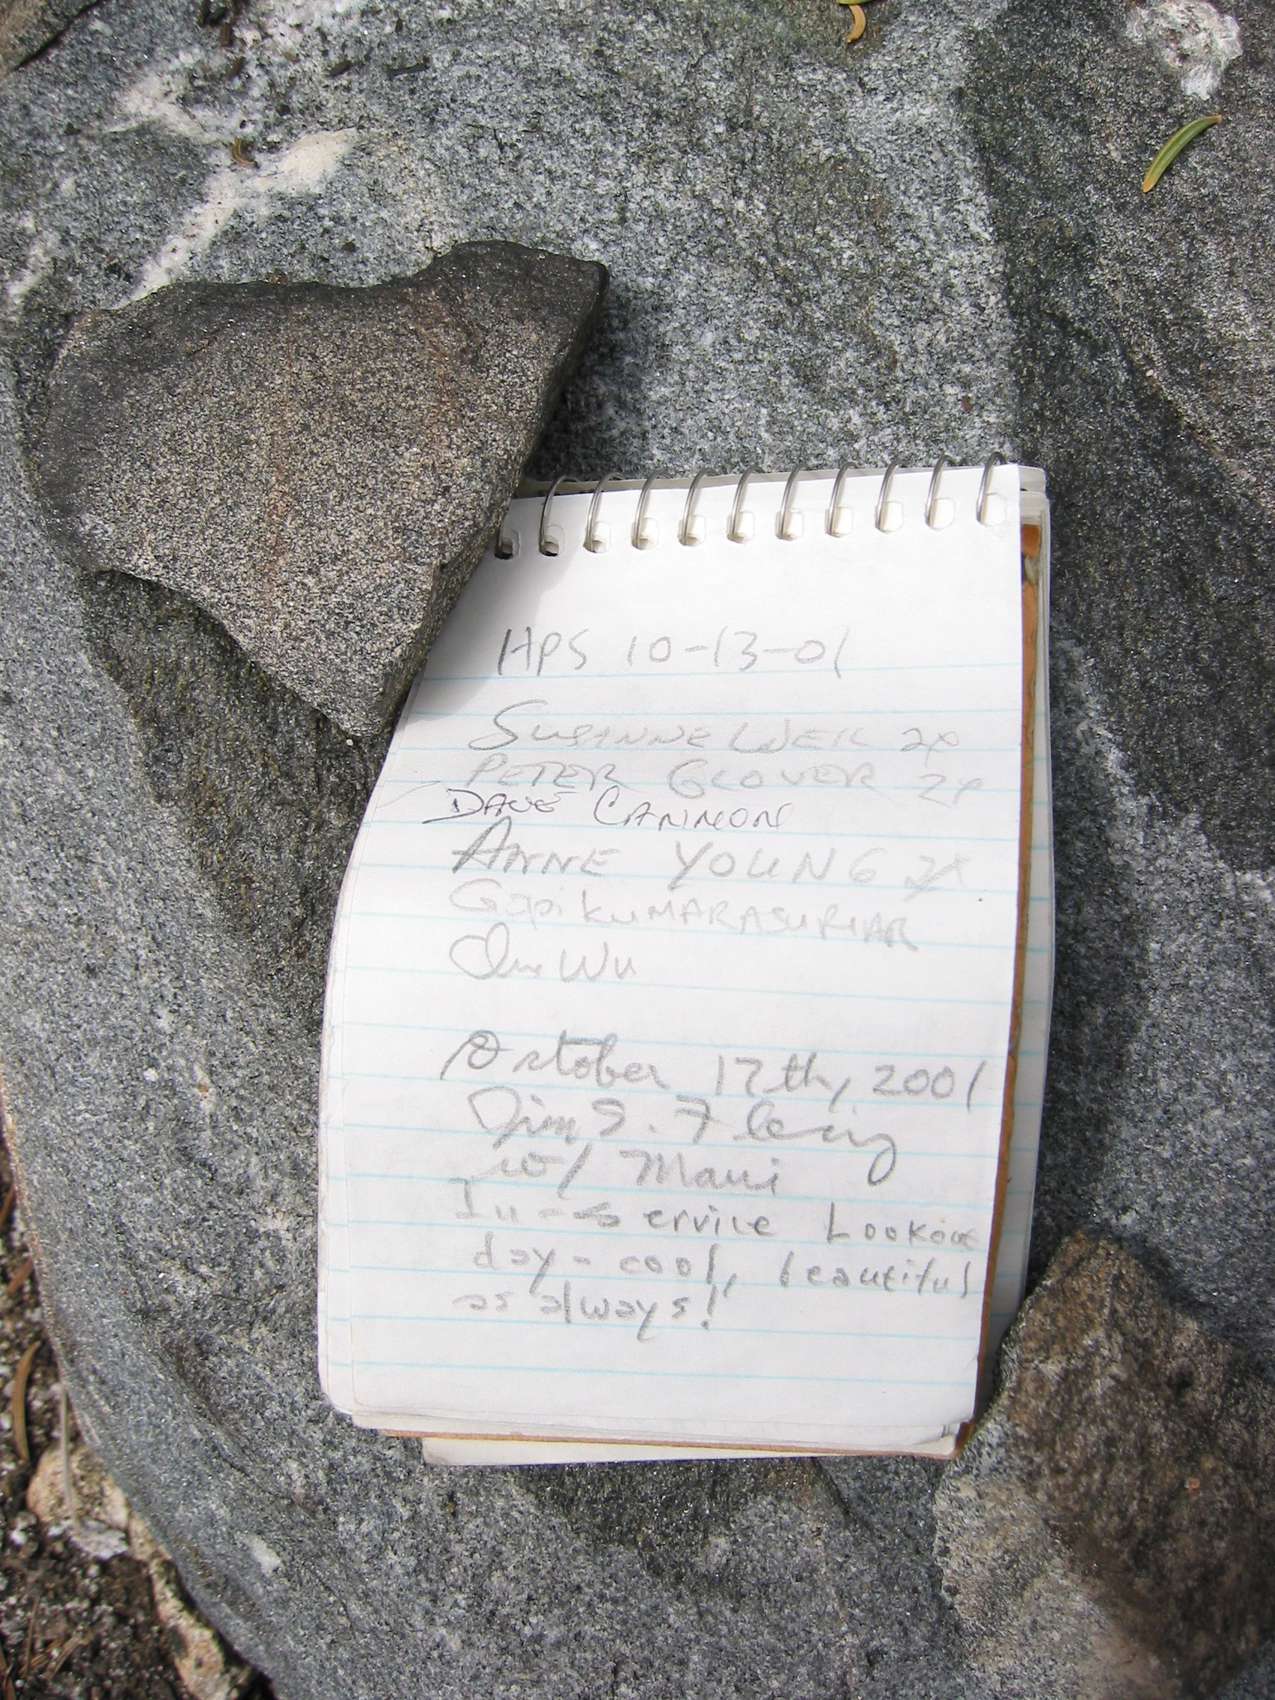 HPS 10-13-01
SUSANNE WEIL 2x
PETER GLOVER 2x
DAVE CANNON
ANNE YOUNG 2x
Gopi KUMARASURIAR
Wu
October 17th, 2001
Jim S. Fleming
w/ Maui
In-service Lookout
day - cool, beautiful
as always!